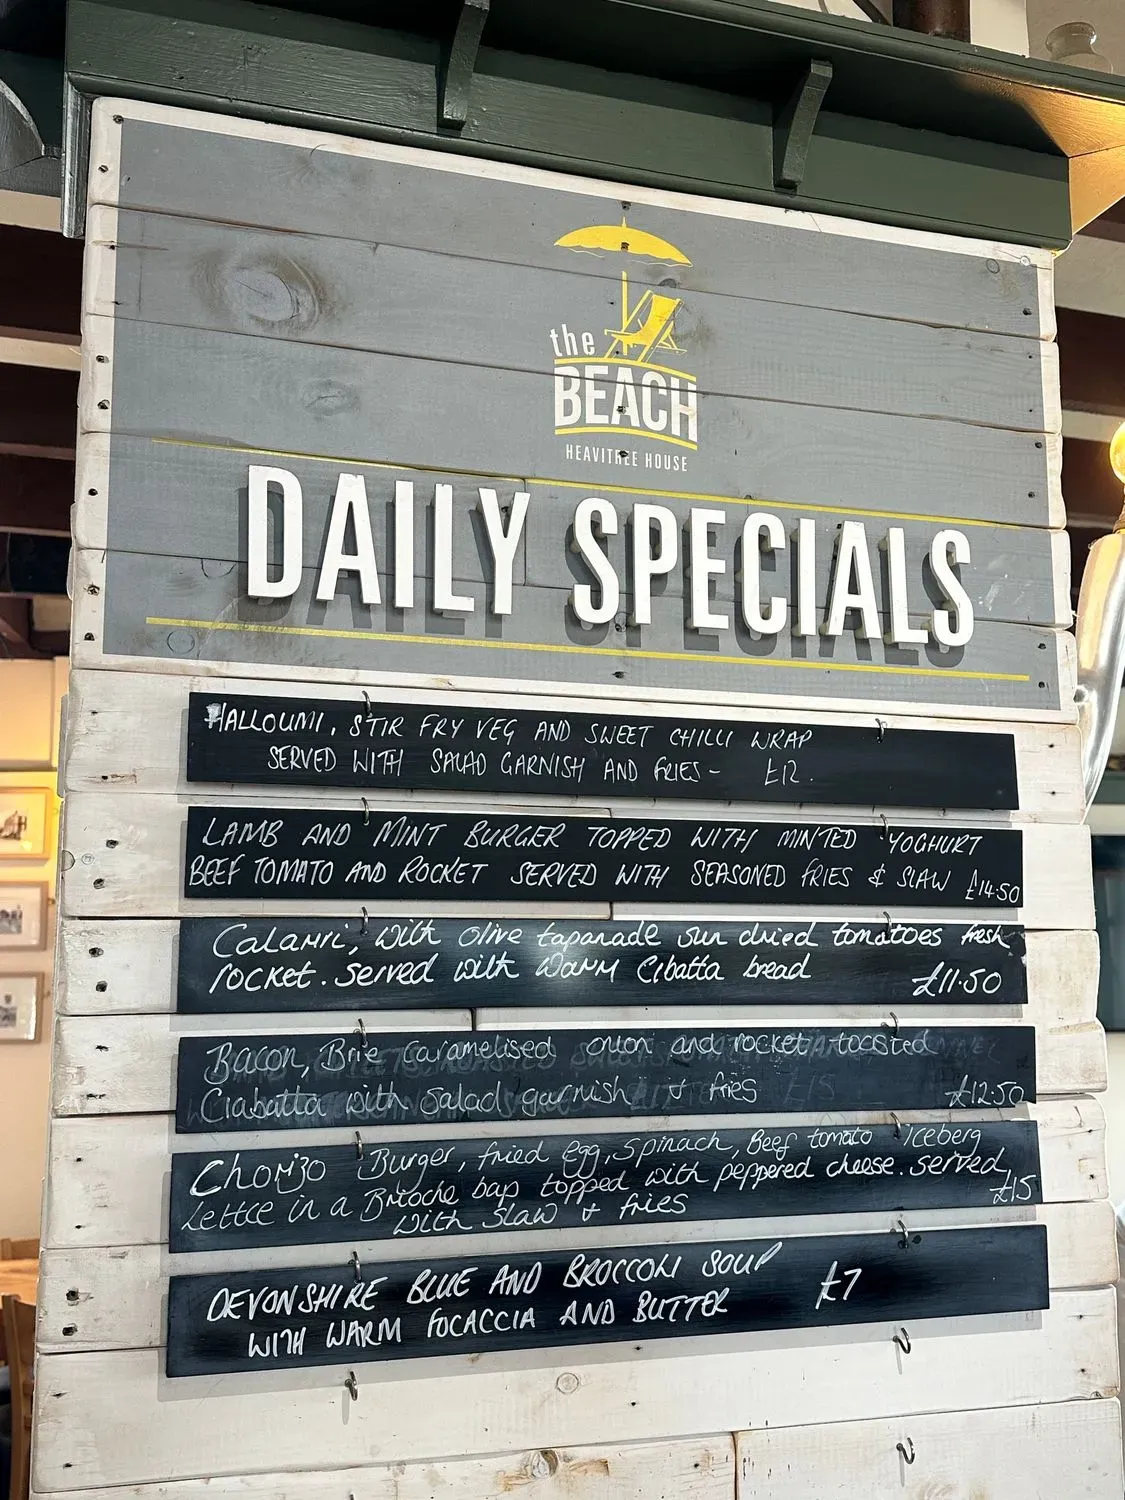 the
BEACH
HEAVITREE HOUSE
DAILY SPECIALS
HALLOUMI, STIR FRY VEG AND SWEET CHILLI WRAP
SERVED WITH SALAD GARNISH AND FRIES - £12.
LAMB AND MINT BURGER TOPPED WITH MINTED YOGHURT
BEEF TOMATO AND ROCKET SERVED WITH SEASONED FRIES & SLAW £14.50
Calamri, with olive tapanade sun dried tomatoes fresh
rocket. served with warm Cibatta bread £11.50
Bacon, Brie Caramelised onion and rocket toasted
Ciabatta with salad garnish & fries £12.50
Chorizo Burger, fried egg, spinach, Beef tomato Iceberg
Lettce in a Brioche bap topped with peppered cheese. served
with slaw & fries £15
DEVONSHIRE BLUE AND BROCCOLI SOUP £7
WITH WARM FOCACCIA AND BUTTER